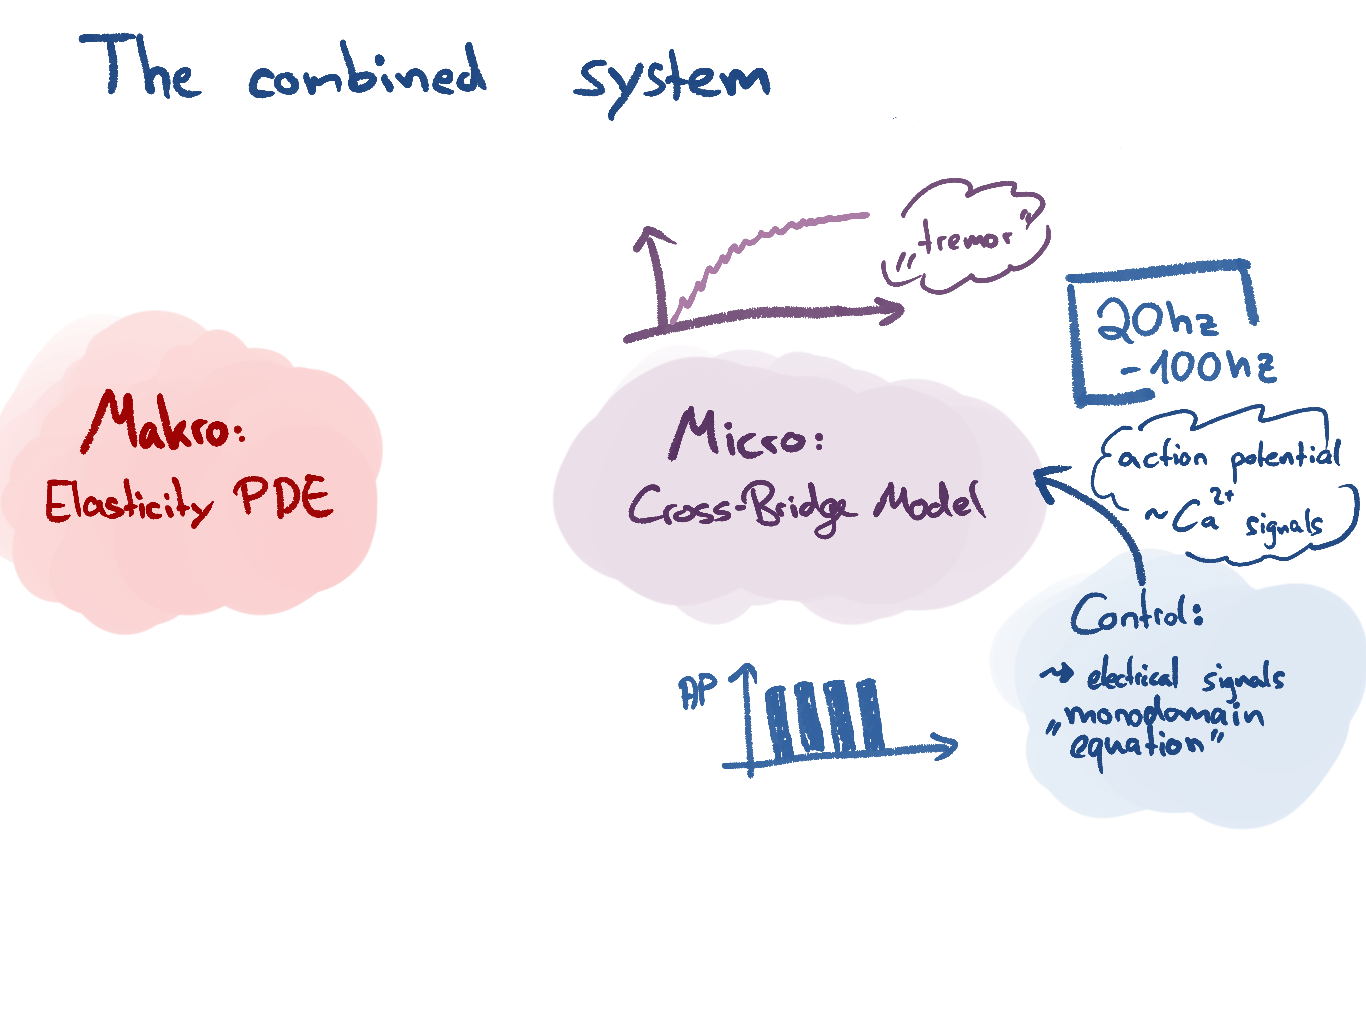 The combined system
„tremor"
20hz
-100hz
Makro:
Elasticity PDE
Micro:
Cross-Bridge Model
action potential
~Ca²⁺ signals
Control:
⇝ electrical signals
„monodomain
equation"
AP